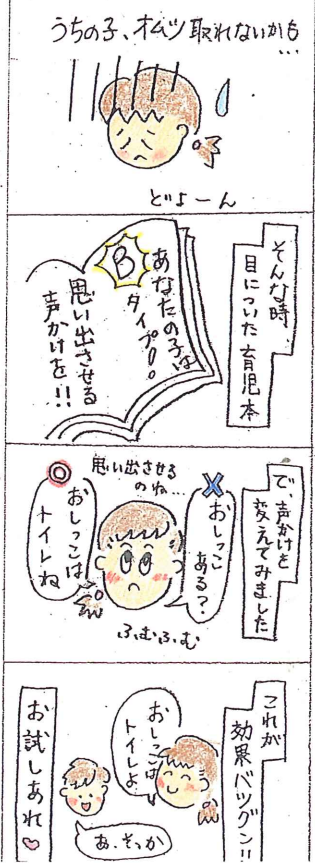 うちの子、オムツ取れないかも
…
どよーん
そんな時
目についた育児本
あなたの子は
Ⓑ
タイプ!。
思い出させる
声かけを!!
で、声かけを
変えてみました
✕
おしっこ
ある?
思い出させる
のね…
◎
おしっこは
トイレね
ふむふむ
これが
効果バツグン!!
おしっこは
トイレよ
あ、そっか
お試しあれ♡